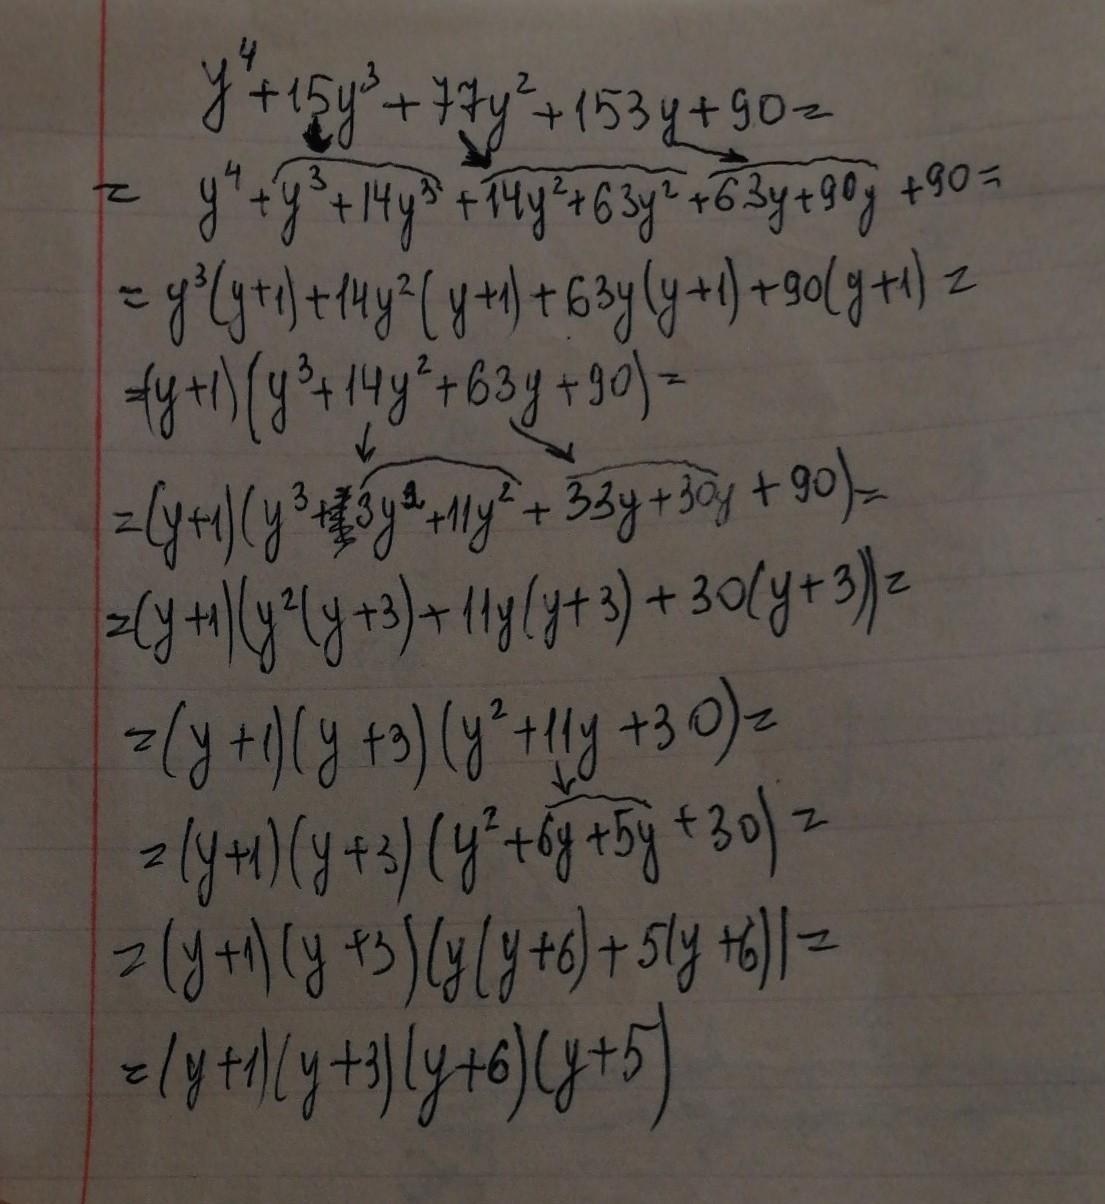 y⁴+15y³+77y²+153y+90=
= y⁴+y³+14y³+14y²+63y²+63y+90y+90=
= y³(y+1)+14y²(y+1)+63y(y+1)+90(y+1)=
=(y+1)(y³+14y²+63y+90)=
=(y+1)(y³+3y²+11y²+33y+30y+90)=
=(y+1)(y²(y+3)+11y(y+3)+30(y+3))=
=(y+1)(y+3)(y²+11y+30)=
=(y+1)(y+3)(y²+6y+5y+30)=
=(y+1)(y+3)(y(y+6)+5(y+6))=
=(y+1)(y+3)(y+6)(y+5)